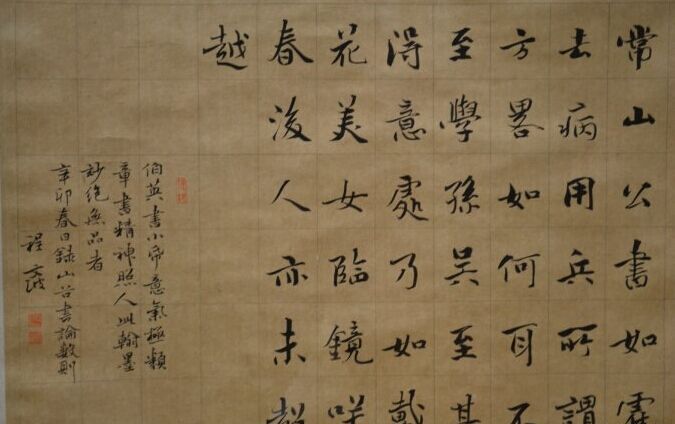 常山公書如霍
去病用兵所謂
方畧如何耳不
至學孫吳至其
得意處乃如戴
花美女臨鏡咲
春後人亦未超
越
伯英書小帝意氣極類
章書精神照人此翰墨
妙絕無品者
辛卯春日錄山谷書論數則
程